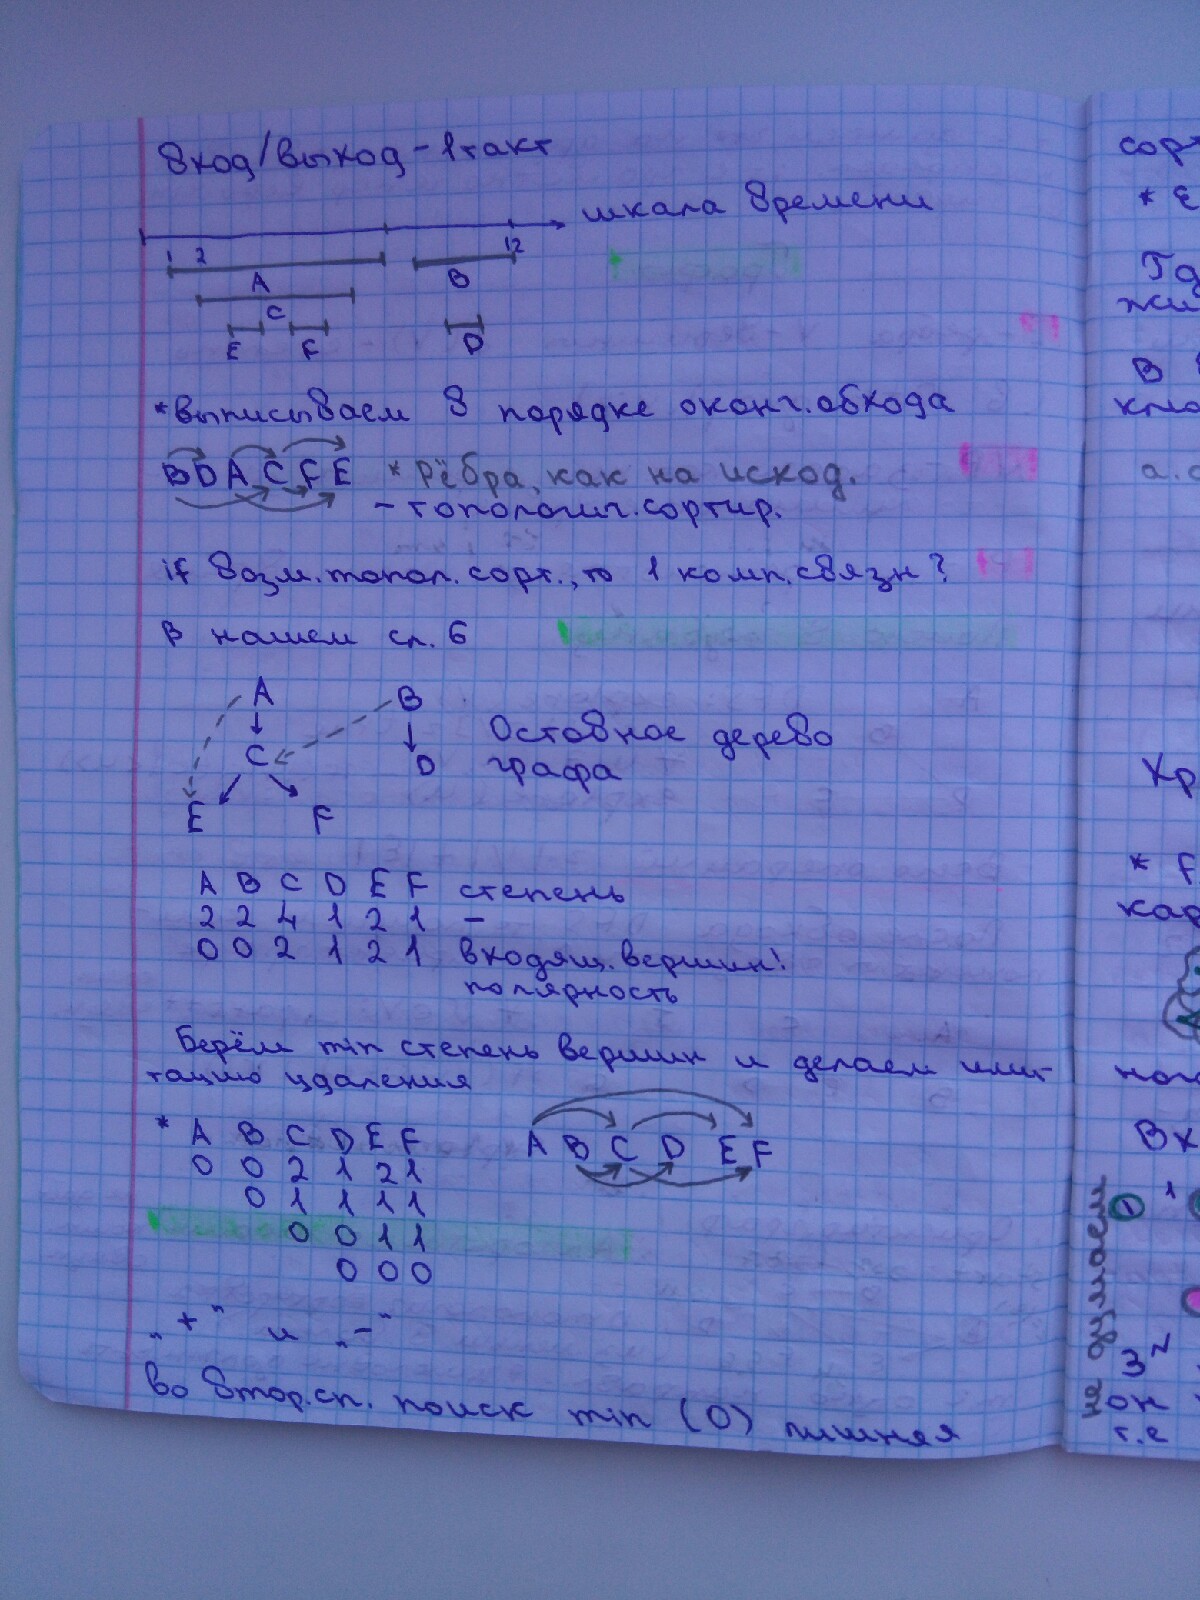 Вход/выход - 1 такт
шкала времени
1 2 12
A B
C
E F D
*выписываем в порядке оконч. обхода
B D A C F E * Рёбра, как на исход.
- топологич. сортир.
if возм. топол. сорт., то 1 комп. связн?
В нашем сл. 6
A B
C D Остовное дерево
графа
E F
A B C D E F степень
2 2 4 1 2 1 -
0 0 2 1 2 1 входящ. вершин!
полярность
Берём min степень вершин и делаем имит
тацию удаления
* A B C D E F A B C D E F
0 0 2 1 2 1
0 1 1 1 1
0 0 1 1
0 0 0
"+" и "-"
во втор. сп. поиск min (0) лишняя
сорт
* Е
В
а.с
Хр
* F
кар
Вх
1 1
не думаем
3
он
т.е